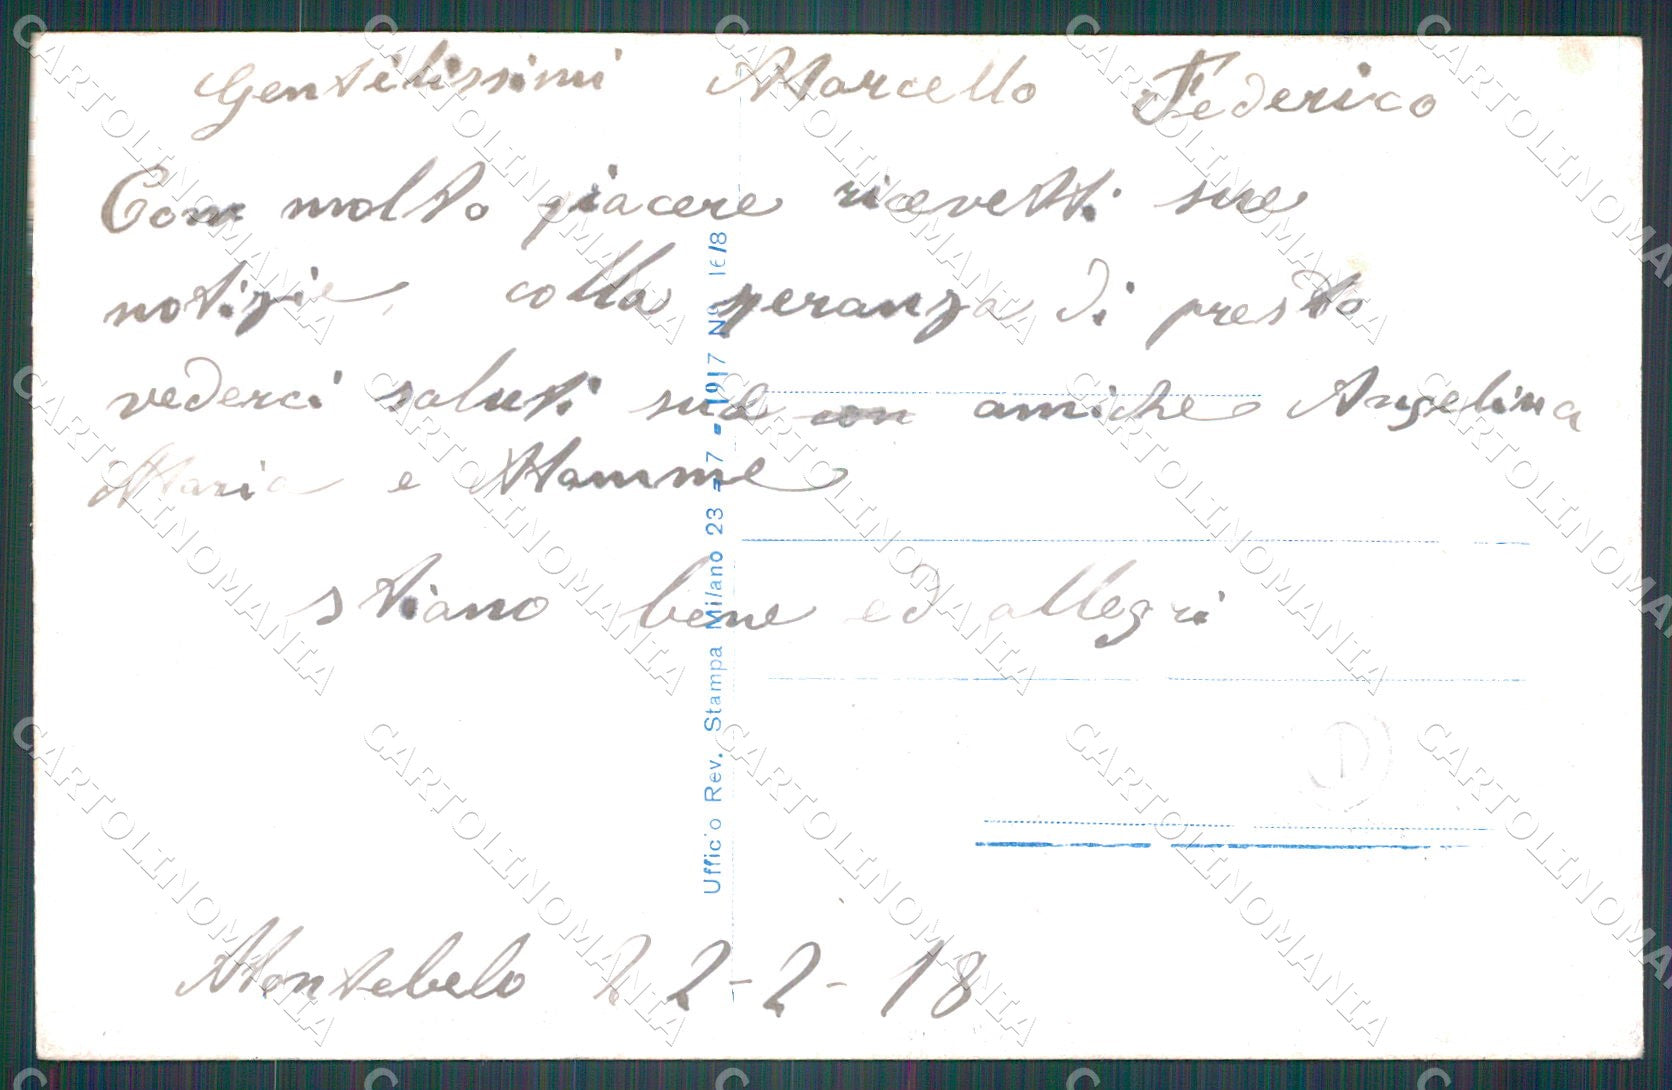 Gentilissimi Marcello Federico
Con molto piacere ricevetti sue
notizie, colla speranza di presto
vederci saluti sue con amiche Angelina
Maria e Mamme
stiano bene ed allegri
Montebelo 22-2-18
Ufficio Rev. Stampa Milano 23-7-1917 N° 16/8
CARTOLINOMANIA